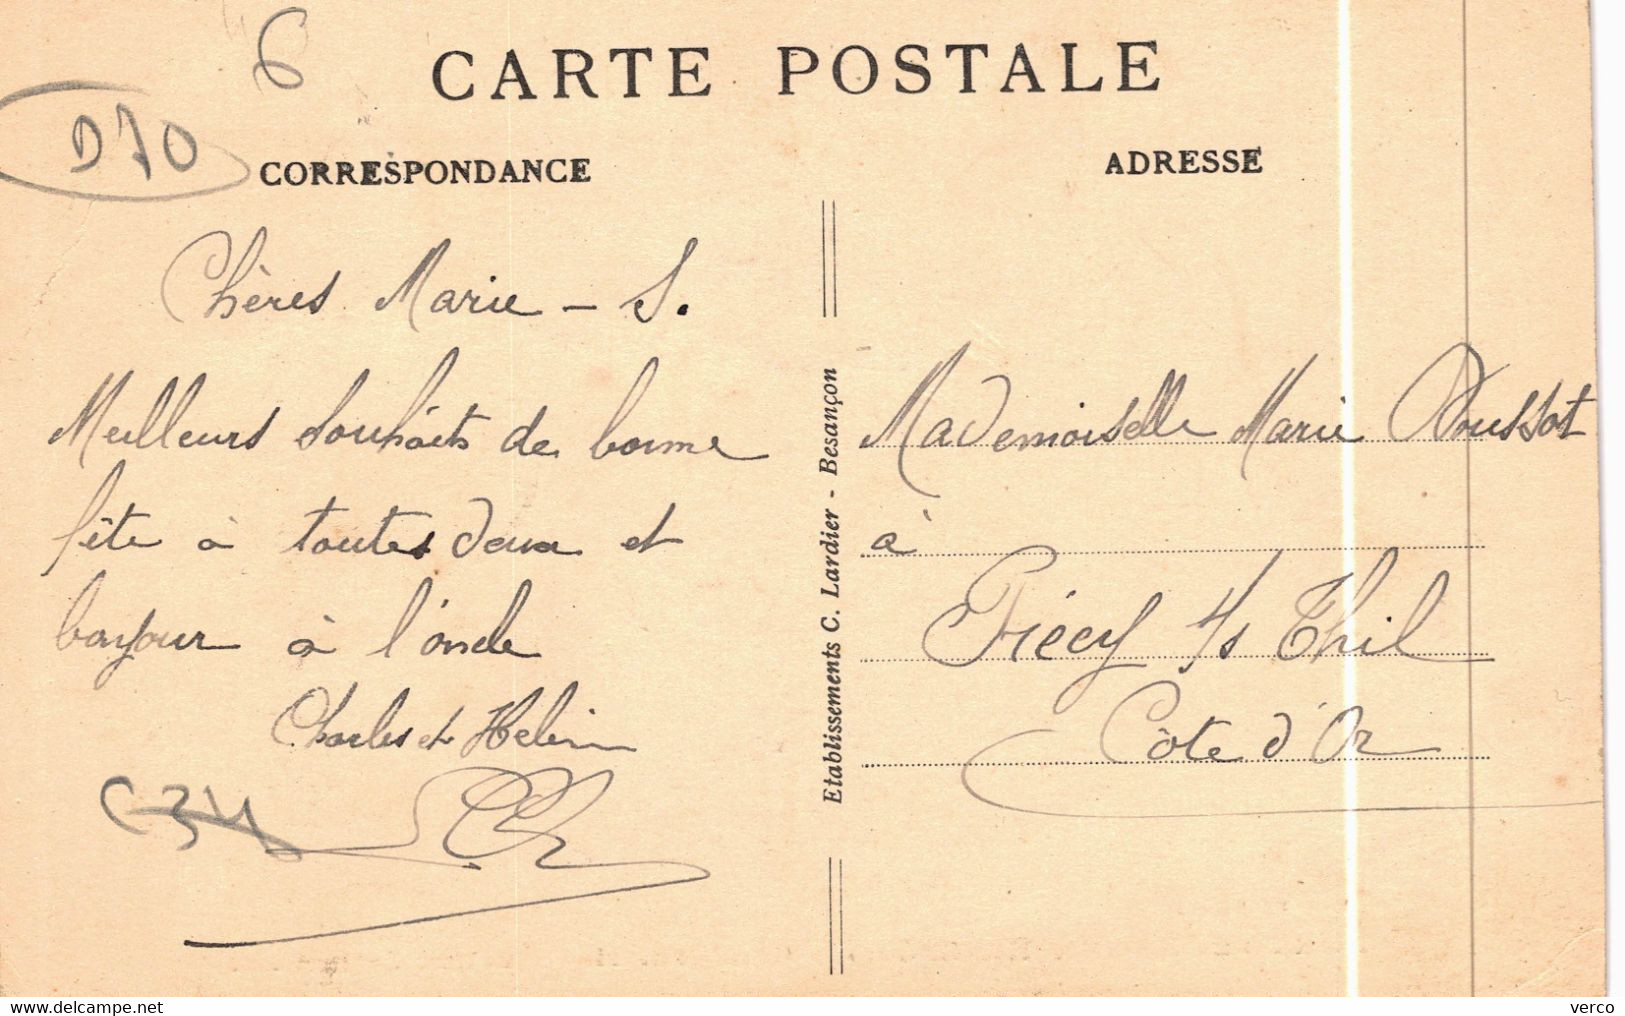 6
CARTE POSTALE
D70
CORRESPONDANCE
ADRESSE
Chères Marie - S.
Meilleurs souhaits de bonne
fête à toutes deux et
bonjour à l'oncle
Charles et Helen
C34
Etablissements C. Lardier - Besançon
Mademoiselle Marie Doussot
à
Précy s/s Thil
Côte d'Or
www.delcampe.net
verco